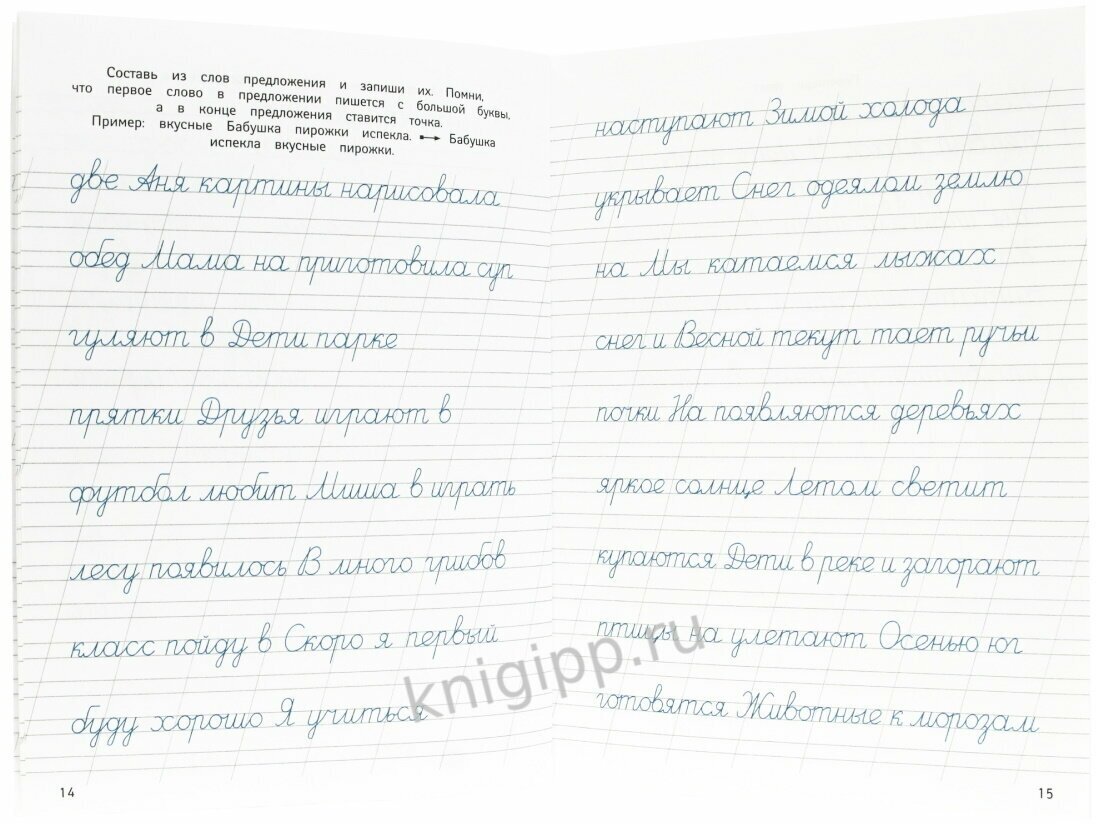 Составь из слов предложения и запиши их. Помни,
что первое слово в предложении пишется с большой буквы,
а в конце предложения ставится точка.
Пример: вкусные Бабушка пирожки испекла. ⟷ Бабушка
испекла вкусные пирожки.
две Аня картины нарисовала
обед Мама на приготовила суп
гуляют в Дети парке
прятки Друзья играют в
футбол любит Миша в играть
лесу появилось В много грибов
класс пойду в Скоро я первый
буду хорошо Я учиться
14
наступают Зимой холода
укрывает Снег одеялом землю
на Мы катаемся лыжах
снег и Весной текут тает ручьи
почки На появляются деревьях
яркое солнце Летом светит
купаются Дети в реке и загорают
птицы на улетают Осенью юг
готовятся Животные к морозам
15
knigipp.ru